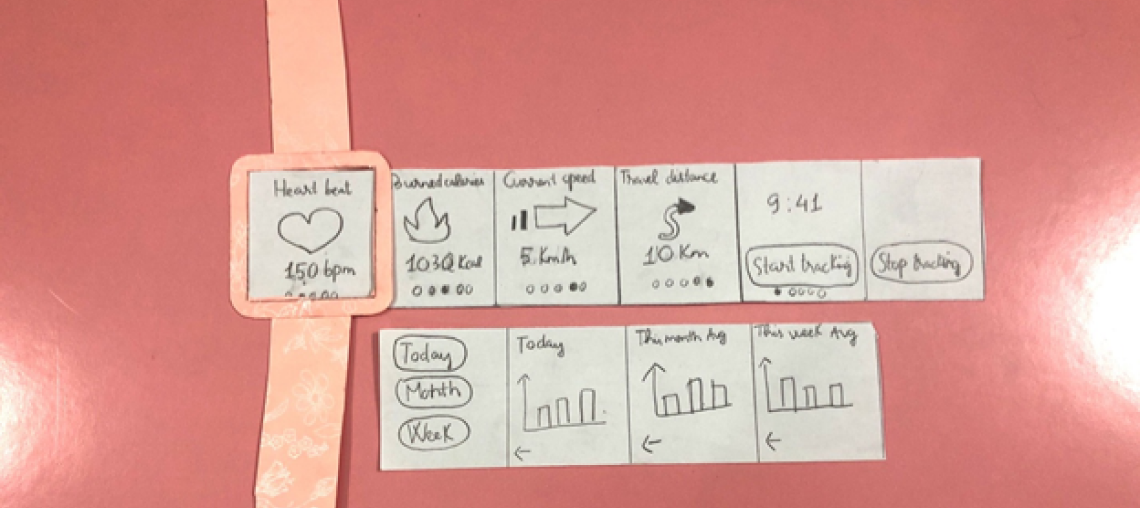 Heart beat
150 bpm
Burned calories
1030 Kcal
Current speed
5 Km/h
Travel distance
10 Km
9:41
Start tracking
Stop tracking
Today
Month
Week
Today
This month Avg
This week Avg